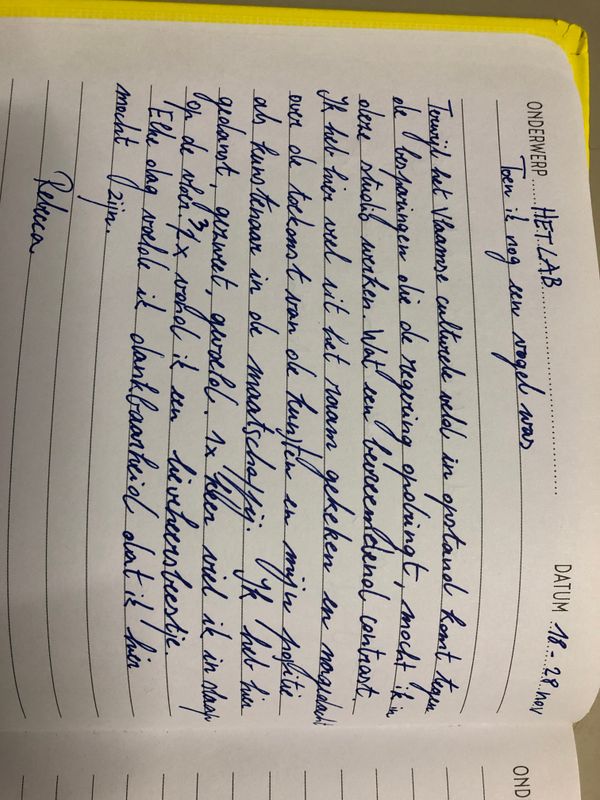 ONDERWERP HET LAB DATUM 18 - 28 nov
Toen ik nog een vogel was
Terwijl het Vlaamse culturele veld in opstand komt tegen
de besparingen die de regering opdringt, mocht ik in
deze studio werken. Wat een bevreemdend contrast.
Ik heb hier veel uit het raam gekeken en nagedacht
over de toekomst van de kunsten en mijn positie
als kunstenaar in de maatschappij. Ik heb hier
gedanst, gezweet, gevoeld. 1x ben viel ik in slaap
op de vloer. 3x vond ik een lieveheersbeestje.
Elke dag voelde ik dankbaarheid dat ik hier
mocht zijn.
Rebecca
OND